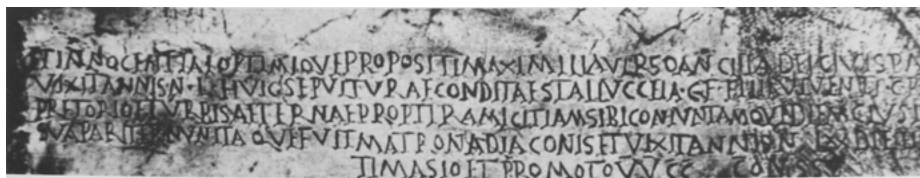 ETINNOCENTIAEOPTIMIQVEPROPOSITIMAXIMILLAVERSOANCILLADEICIVISPA
VIXITANNISN·LXHVICSEPVLTVRAECONDITAESTALVCCEIA·CF·
PRETORIOETVRBISAETERNAEPROPTERAMICITIAMSIBICONIVNTAM
SVAPARITERMVNITAQVEFVITMATRONADIACONISETVIXITANNIS
TIMASIOETPROMOTOVVCC CONS